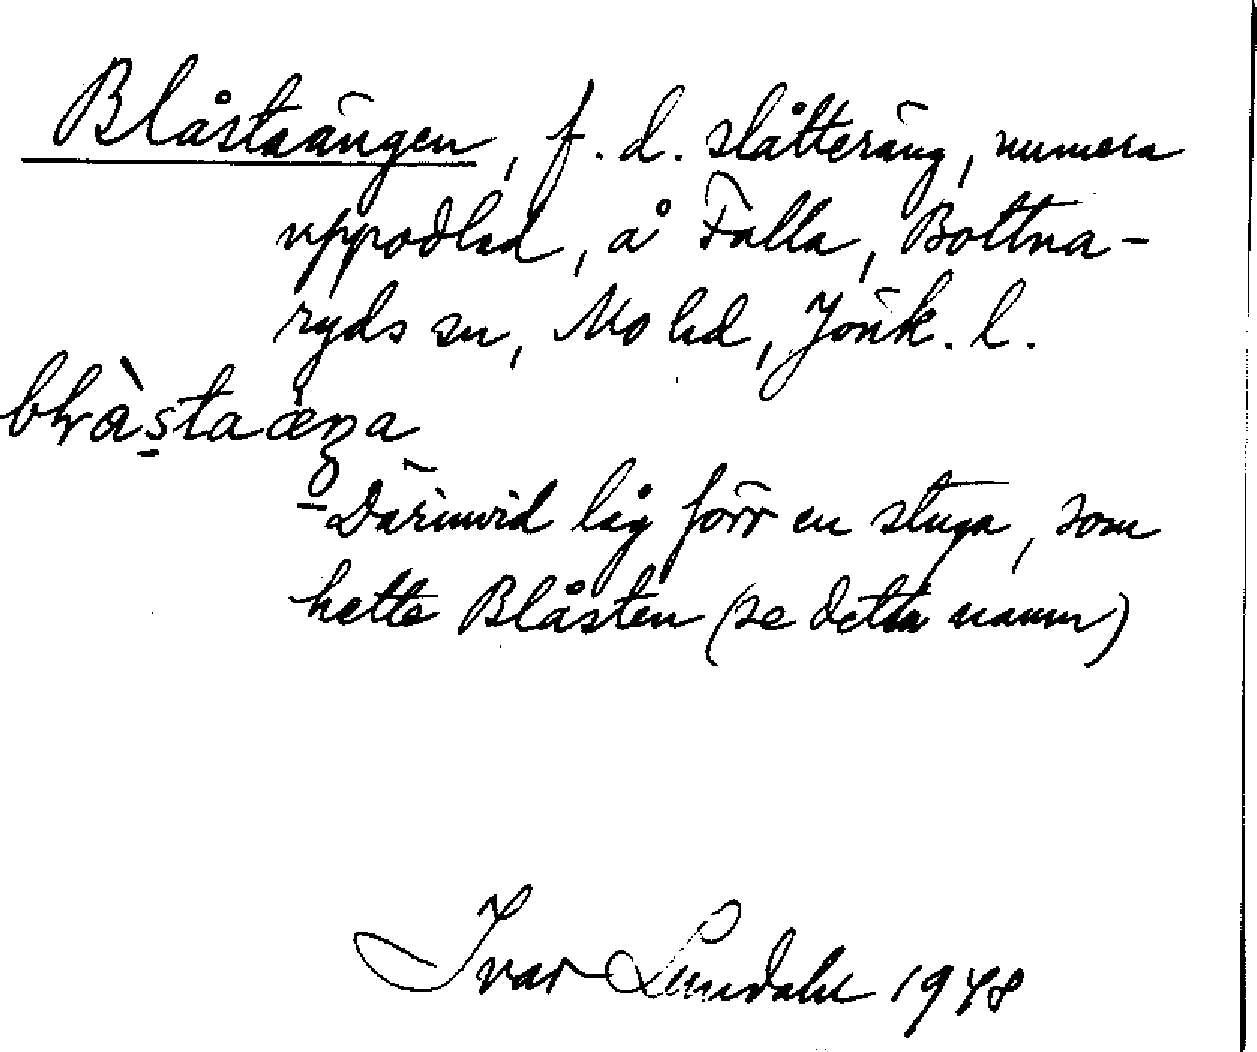 Blåstaängen, f. d. slåtteräng, numera
uppodlad, å Falla, Bottna-
ryds sn, Mo hd, Jönk. l.
Därinvid låg förr en stuga, som
hette Blåsten (se detta namn)
Ivar Lundahl 1948